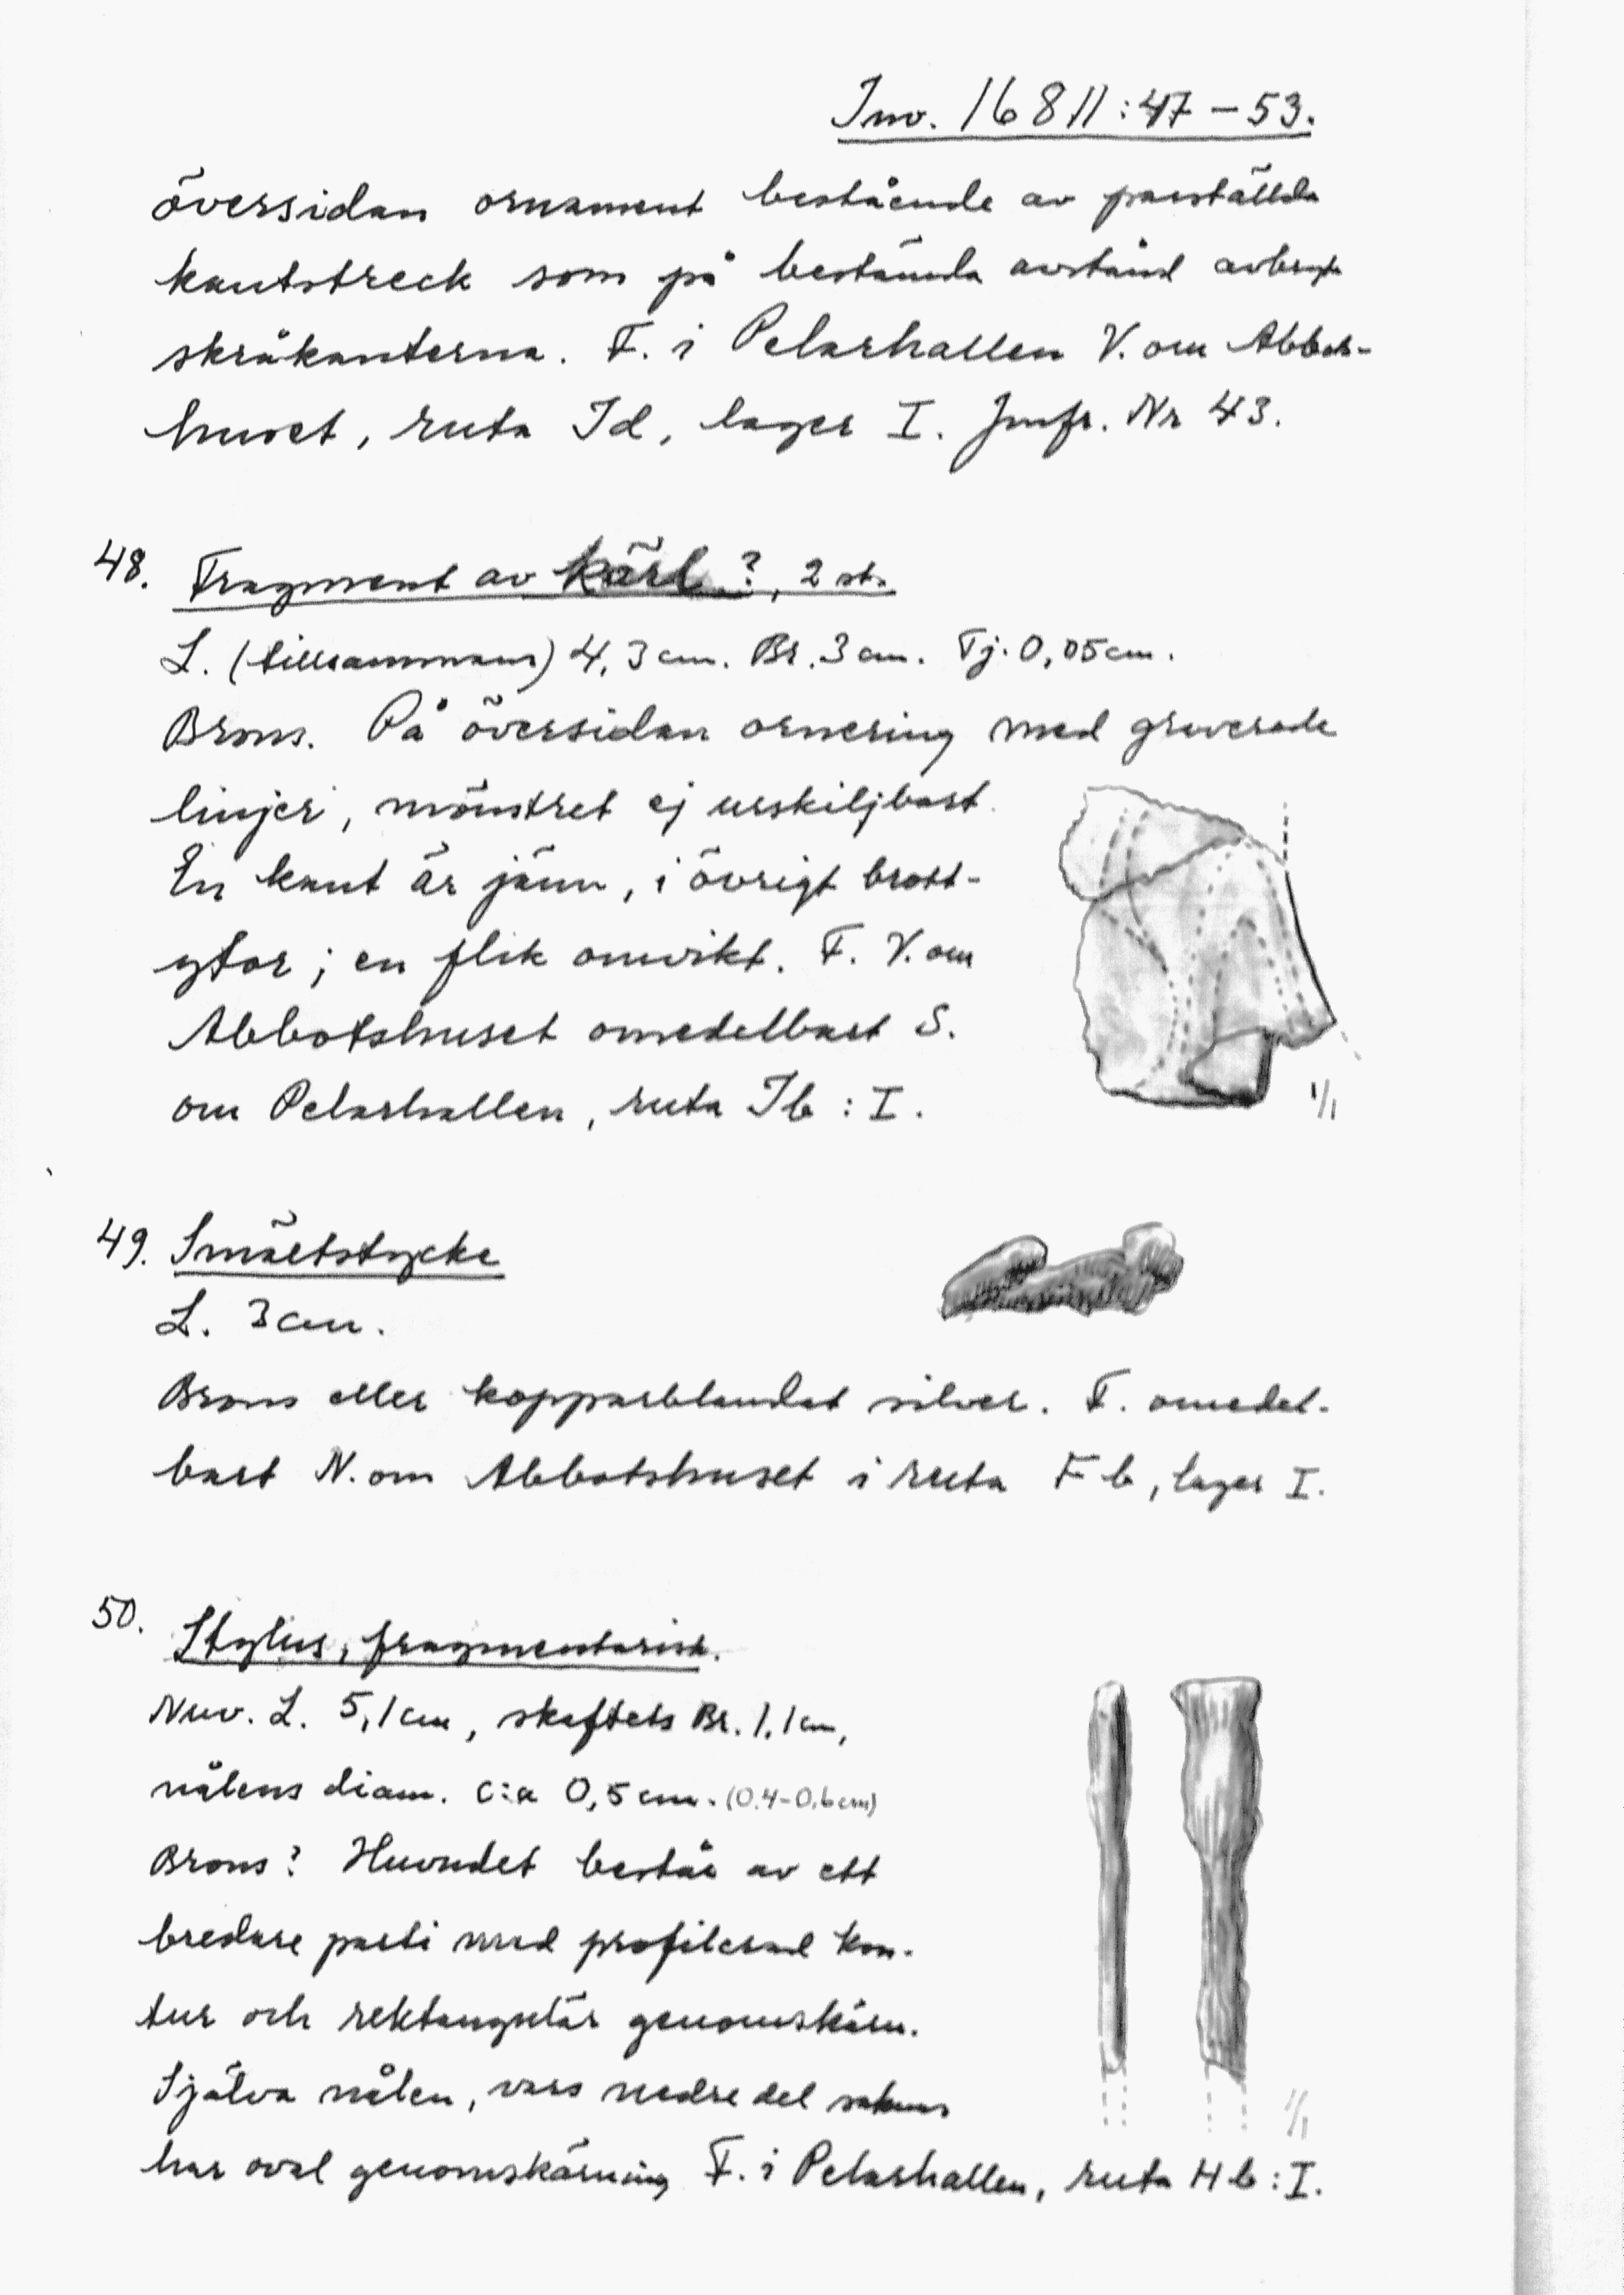 Inv. 16811:47-53.
översidan ornament bestående av parställda
kantstreck som på bestämda avstånd avbryta
skråkanterna. F. i Pelarhallen V. om Abbots-
huset, ruta Id, lager I. Jmfr. Nr 43.
48. Fragment av kärl?, 2 st.
L. (tillsammans) 4,3 cm. Br. 3 cm. Tj. 0,05 cm.
Brons. På översidan ornering med graverade
linjer, mönstret ej urskiljbart.
En kant är jämn, i övrigt brott-
ytor; en flik omvikt. F. V. om
Abbotshuset omedelbart S.
om Pelarhallen, ruta Ib : I.
1/1
49. Smältstycke
L. 3 cm.
Brons eller kopparblandat silver. F. omedel-
bart N. om Abbotshuset i ruta Fb, lager I.
50. Stylus, fragmentarisk.
Nuv. L. 5,1 cm, skaftets Br. 1,1 cm,
nålens diam. c:a 0,5 cm. (0.4-0,6 cm)
Brons? Huvudet består av ett
bredare parti med profilerad kon-
tur och rektangulär genomskärn.
Själva nålen, vars nedre del saknas
har oval genomskärning F. i Pelarhallen, ruta Hb : I.
1/1